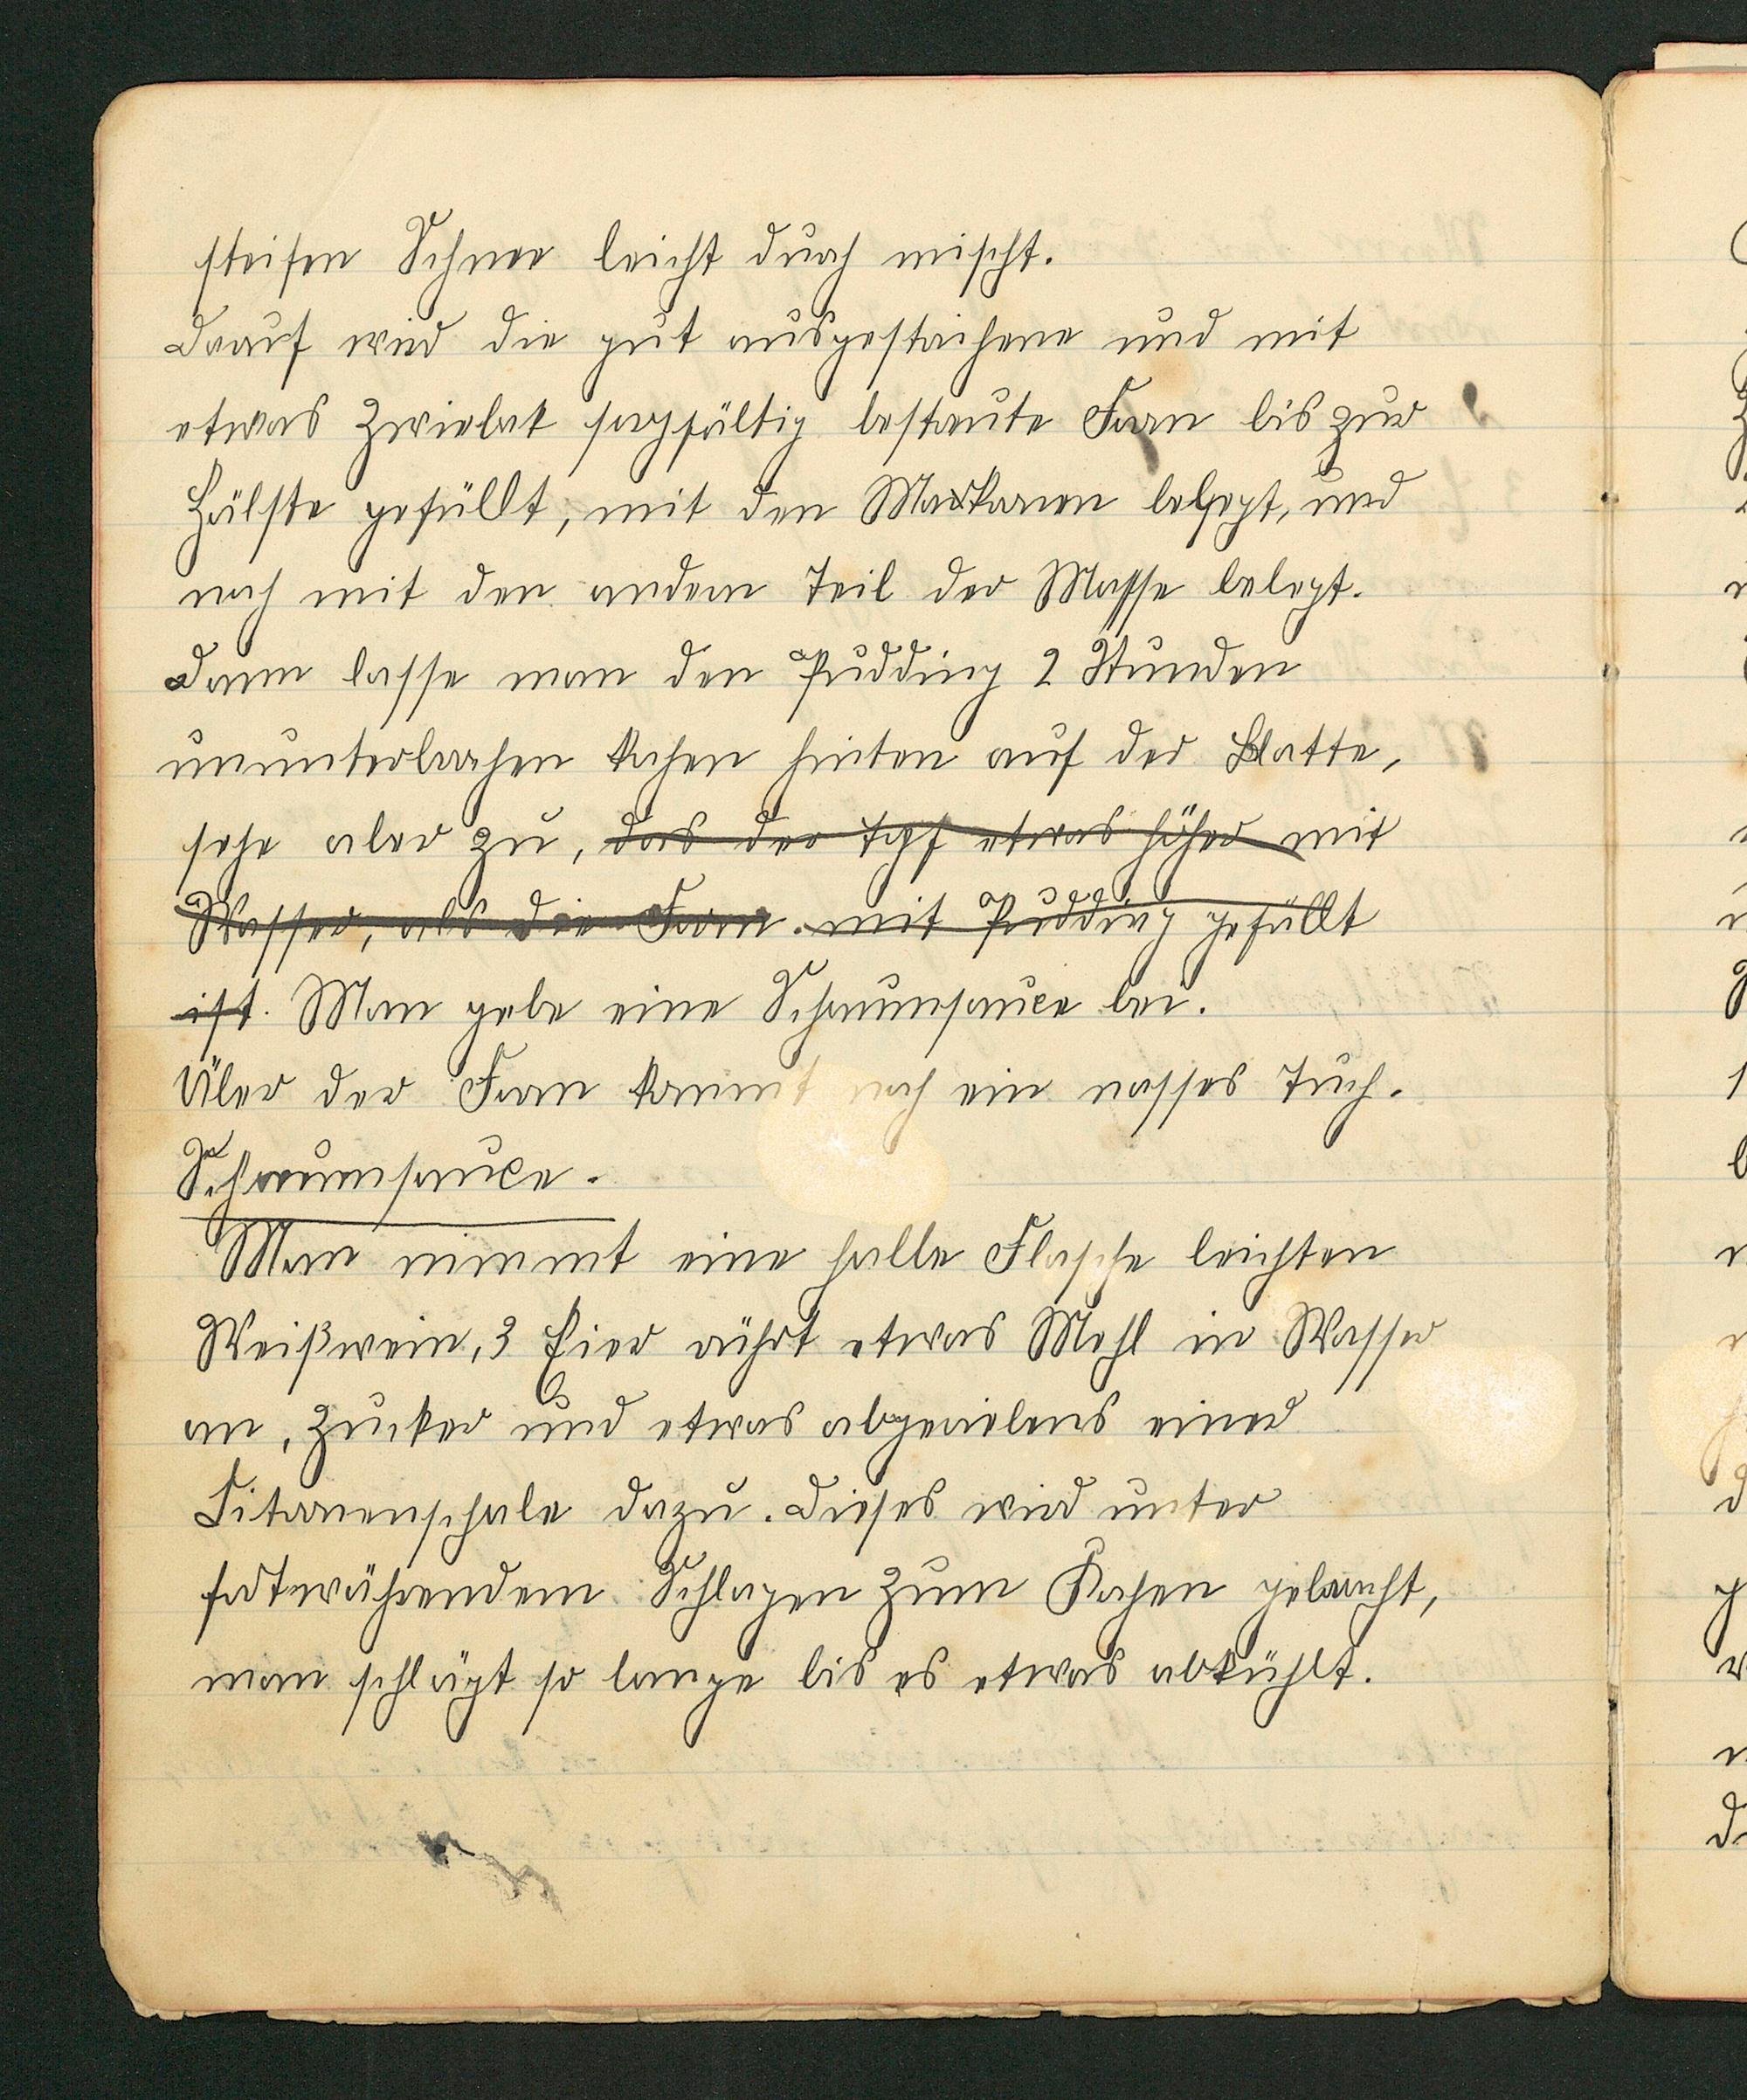 steifen Schnee leicht durch mischt.
Drauf wird die gut ausgestrichene und mit
etwas Zwiebak sorgfältig bestreute Form bis zur
Hälfte gefüllt, mit den Makronen belegt, und
noch mit den andern Teil der Masse belegt.
Dann lasse man den Pudding 2 Stunden
ununterbrochen kochen hinten auf der Platte,
sehe aber zu, das der Topf etwas höher mit
Wasser, als die Form mit Pudding gefüllt
ist. Man gebe eine Schaumsauce bei.
Über der Form kommt noch ein nasses Tuch.
Schaumsauce.
Man nimmt eine halbe Flasche leichten
Weißwein, 3 Eier rührt etwas Mehl in Wasser
an, Zucker und etwas abgeriebens einer
Zitronenschale dazu. Dieses wird unter
fortwährendem Schlagen zum Kochen gebracht,
man schlägt so lange bis es etwas abkühlt.